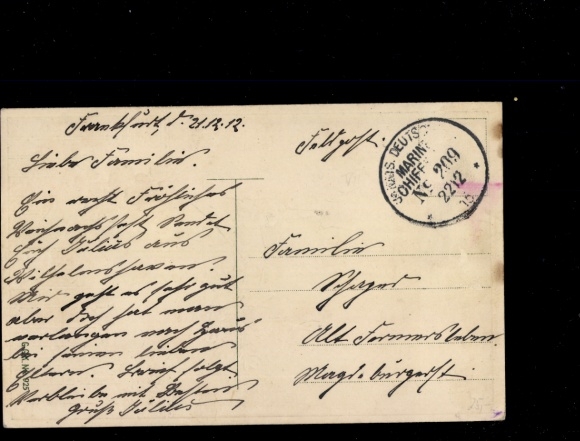 Frankfurt, d. 21.12.12.
Liebe Familie.
Ein recht Fröhliches
Weihnachtsfest sendet
Euch Julius aus
Wilhelmshaven.
Mir geht es sehr gut
aber doch hat man
verlangen nach Haus
bei seinen lieben
Eltern. Brief folgt.
Verbleibe mit besten
Gruß Julius
Feldpost.
DEUTSCHE
MARINE
SCHIFFS
No 209
22 12
Familie
Alt Fermersleben.
Magdeburgerst.